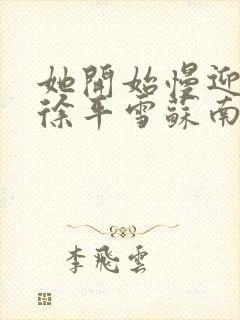 她開始慢迎
徐平雪蘇南
李飛雲